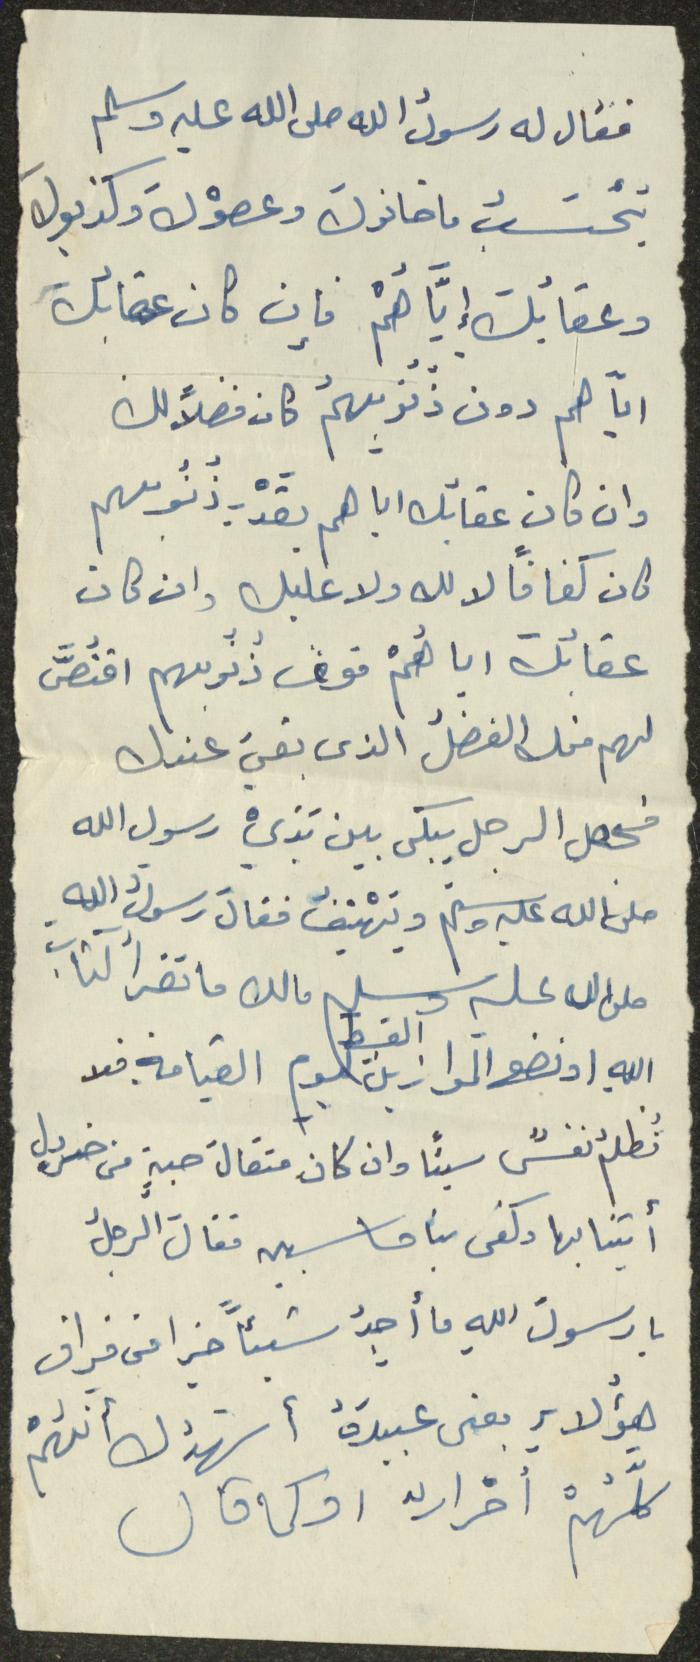 فقال له رسولُ الله صلى الله عليه وسلم
يُحْسَبُ ما خانوكَ وعصوْكَ وكذبوكَ
وعقابُكَ إيَّاهُمْ فإن كان عقابُكَ
ايّاهم دون ذُنُوبِهمْ كان فضلاً لك
وان كان عقابُك اياهم بقَدْرِ ذُنُوبهم
كان كفافًا لا لك ولا عليك وان كان
عقابُكَ اياهُمْ فوقَ ذُنُوبهم اقتُصَّ
لهم منك الفضلُ الذى بقىَ عندك
فجعل الرجل يبكى بين يَدَيْ رسول الله
صلى الله عليه وسلم ويَهْتِفُ فقال رسولُ اللهِ
صلى الله عليه وسلم مالك ما تقرأُ كتابَ
اللهِ ونضع الموازين القسط ليوم القيامة فلا
تُظلمُ نفسٌ شيئًا وان كان مثقالَ حبةٍ من خردل
أتينا بها وكفى بنا حاسبين فقال الرجلُ
يا رسولَ اللهِ ما أجِدُ شيئاً خيرا من فراق
هؤُلاءِ يعنى عبيدَهُ أُشهدُك أنهُمْ
كُلَّهُمْ أحْرارٌ اوكما قال